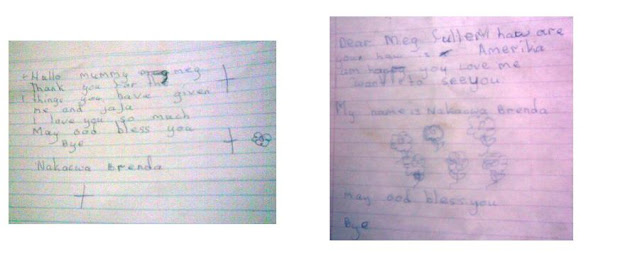 Hallo mummy meg
Thank you for the
things you have given
me and jaja
I love you so much
May God bless you
Bye
Nakacwa Brenda
Dear Meg how are
your how is Amerika
I am happy you love me
to see you
My name is Nakacwa Brenda
May God bless you
Bye